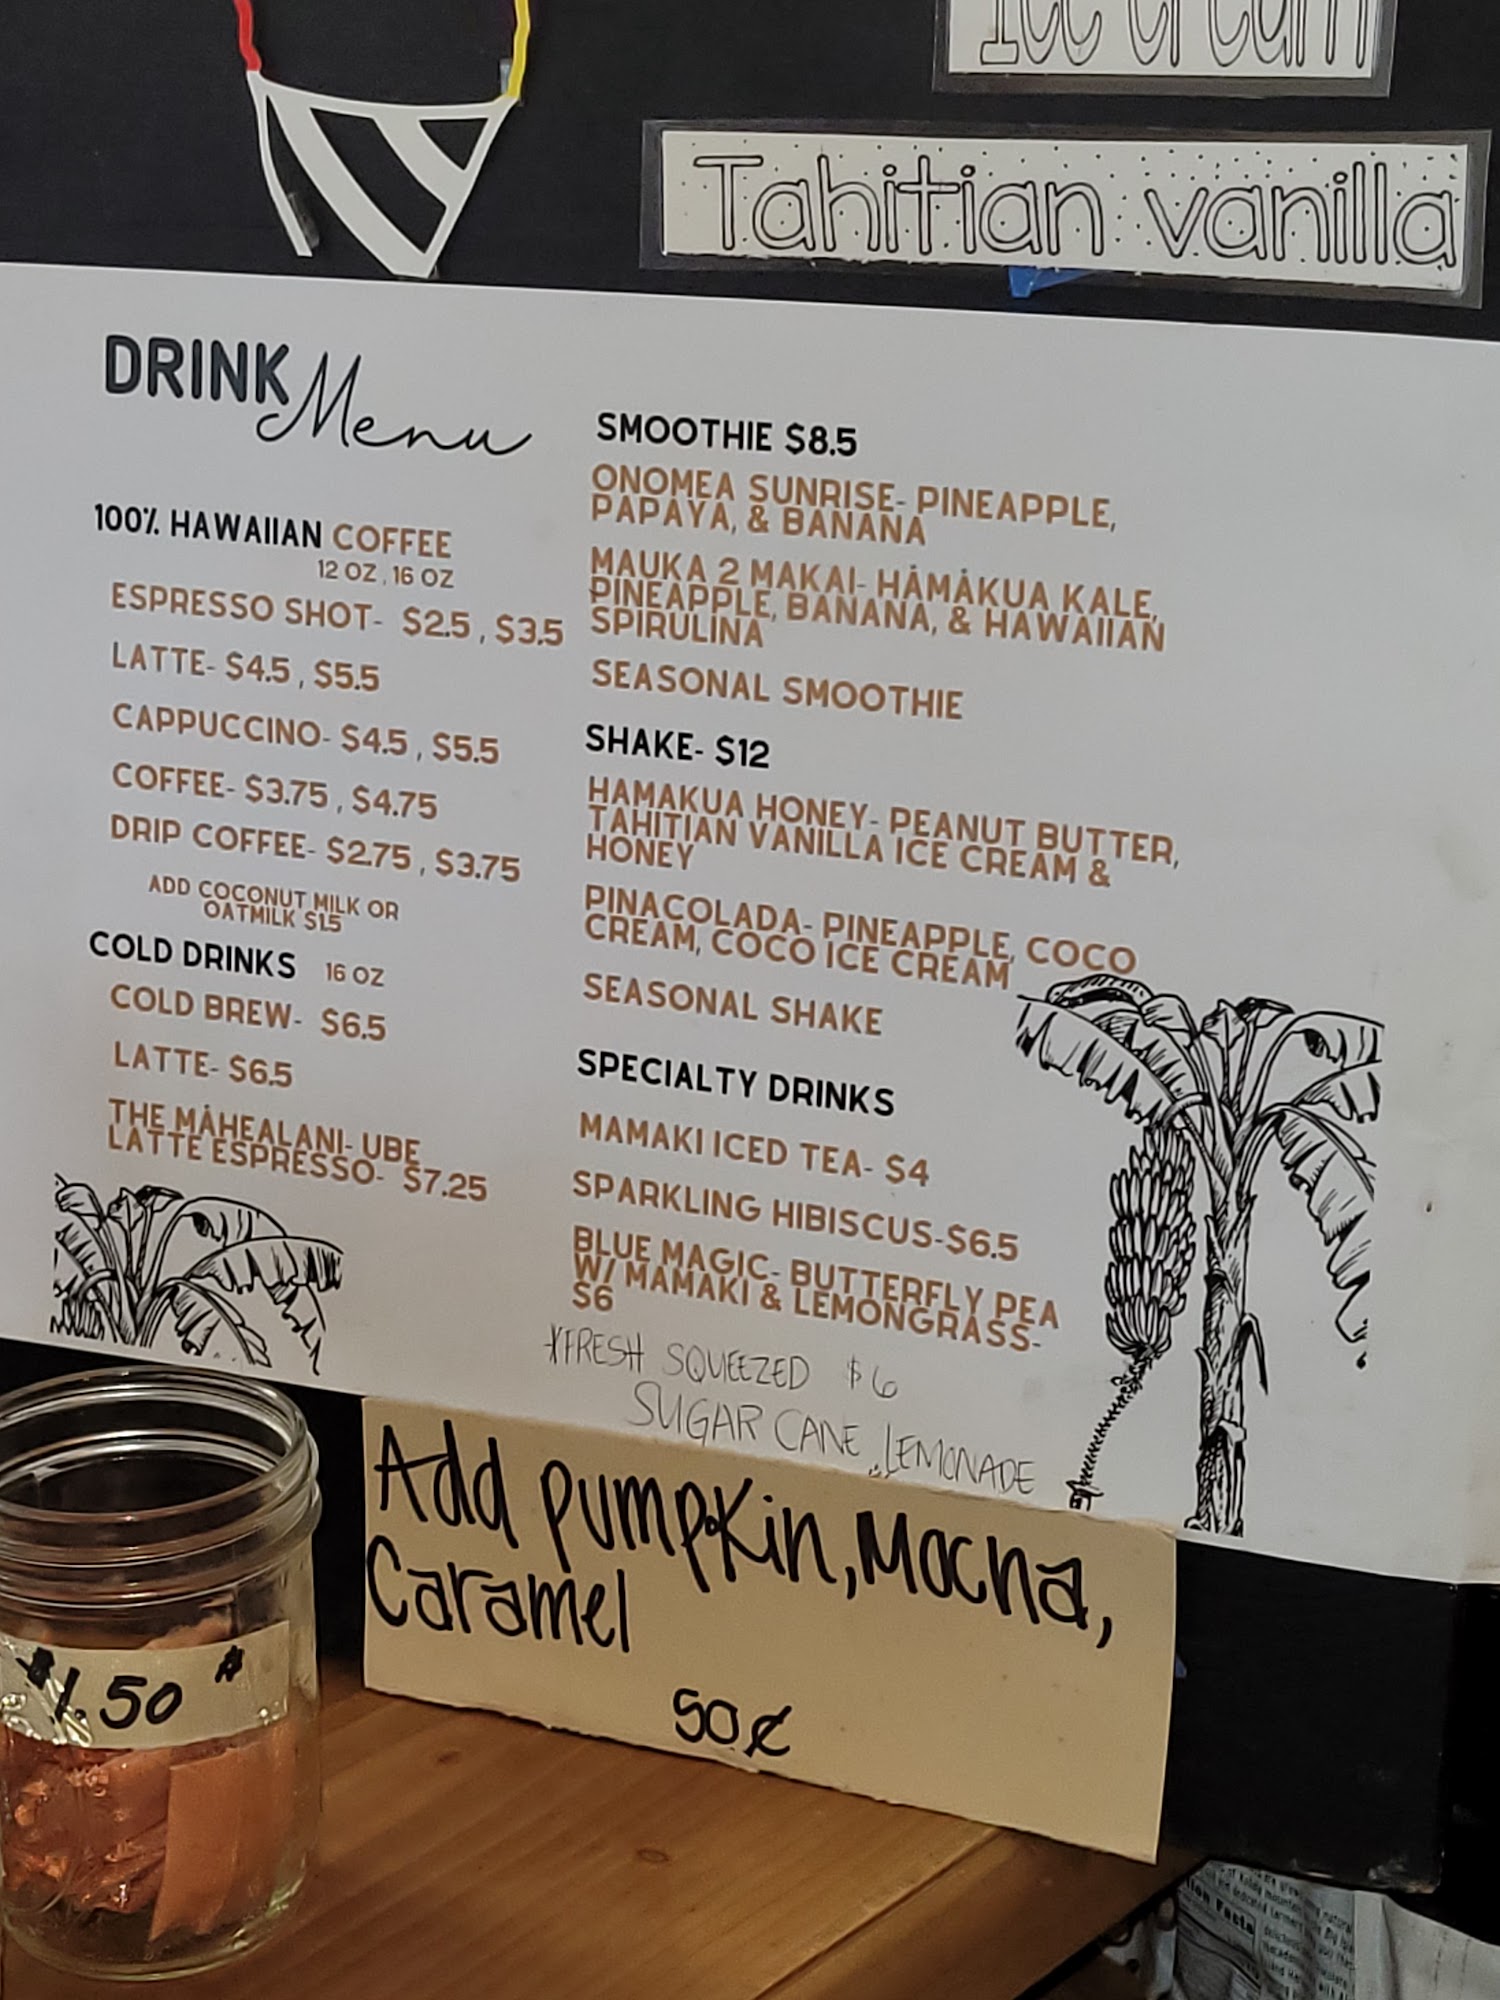 Ice cream
Tahitian vanilla
DRINK Menu
100% HAWAIIAN COFFEE
12 OZ , 16 OZ
ESPRESSO SHOT- $2.5 , $3.5
LATTE- $4.5 , $5.5
CAPPUCCINO- $4.5 , $5.5
COFFEE- $3.75 , $4.75
DRIP COFFEE- $2.75 , $3.75
ADD COCONUT MILK OR
OATMILK $1.5
COLD DRINKS 16 OZ
COLD BREW- $6.5
LATTE- $6.5
THE MÅHEALANI- UBE
LATTE ESPRESSO- $7.25
SMOOTHIE $8.5
ONOMEA SUNRISE- PINEAPPLE,
PAPAYA, & BANANA
MAUKA 2 MAKAI- HÅMÅKUA KALE,
PINEAPPLE, BANANA, & HAWAIIAN
SPIRULINA
SEASONAL SMOOTHIE
SHAKE- $12
HAMAKUA HONEY- PEANUT BUTTER,
TAHITIAN VANILLA ICE CREAM &
HONEY
PINACOLADA- PINEAPPLE, COCO
CREAM, COCO ICE CREAM
SEASONAL SHAKE
SPECIALTY DRINKS
MAMAKI ICED TEA- $4
SPARKLING HIBISCUS-$6.5
BLUE MAGIC- BUTTERFLY PEA
W/ MAMAKI & LEMONGRASS-
$6
*FRESH SQUEEZED $6
SUGAR CANE LEMONADE
Add pumpkin, Mocha,
Caramel
50¢
$1.50